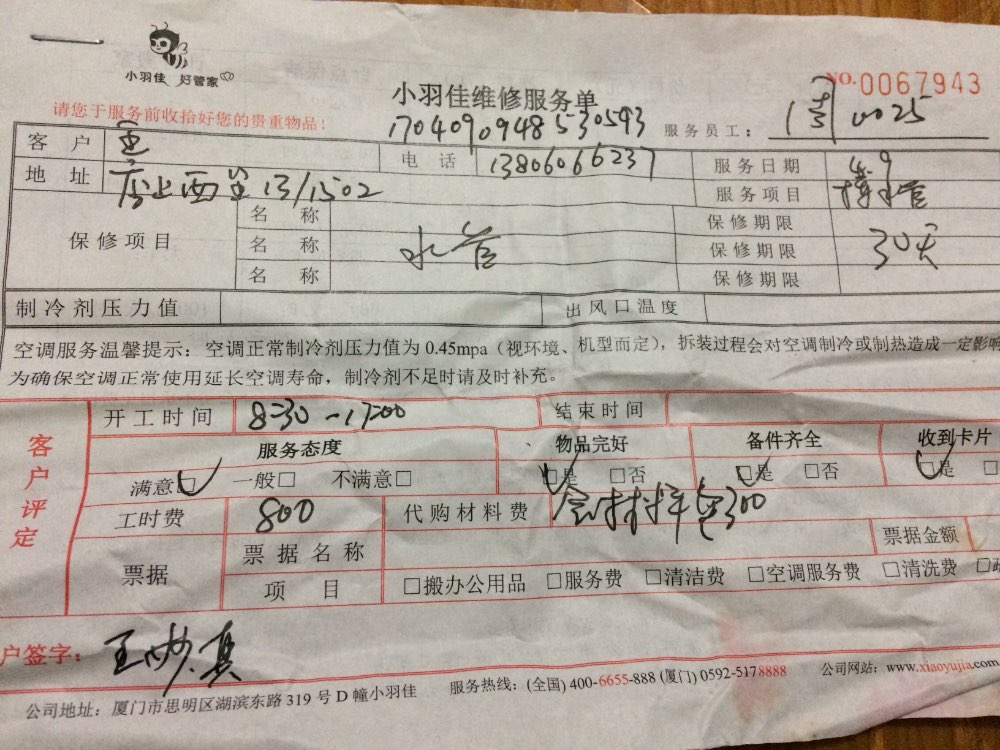 小羽佳 好管家
NO.0067943
请您于服务前收拾好您的贵重物品！
小羽佳维修服务单
170409094853059​3
服务员工： 0025
客户
电话 13806066237
服务日期
地址 13/1502
服务项目
保修项目 名称 水管 保修期限 30天
名称 保修期限
名称 保修期限
制冷剂压力值 出风口温度
空调服务温馨提示：空调正常制冷剂压力值为 0.45mpa（视环境、机型而定），拆装过程会对空调制冷或制热造成一定影响
为确保空调正常使用延长空调寿命，制冷剂不足时请及时补充。
客户评定
开工时间 8:30-17:00 结束时间
服务态度 物品完好 备件齐全 收到卡片
满意□ 一般□ 不满意□ □是 □否 □是 □否 □是
工时费 800 代购材料费 300
票据 票据名称 票据金额
项目 □搬办公用品 □服务费 □清洁费 □空调服务费 □清洗费
户签字：
公司地址：厦门市思明区湖滨东路 319 号 D 幢小羽佳 服务热线：(全国) 400-6655-888 (厦门) 0592-5178888 公司网站：www.xiaoyujia.com